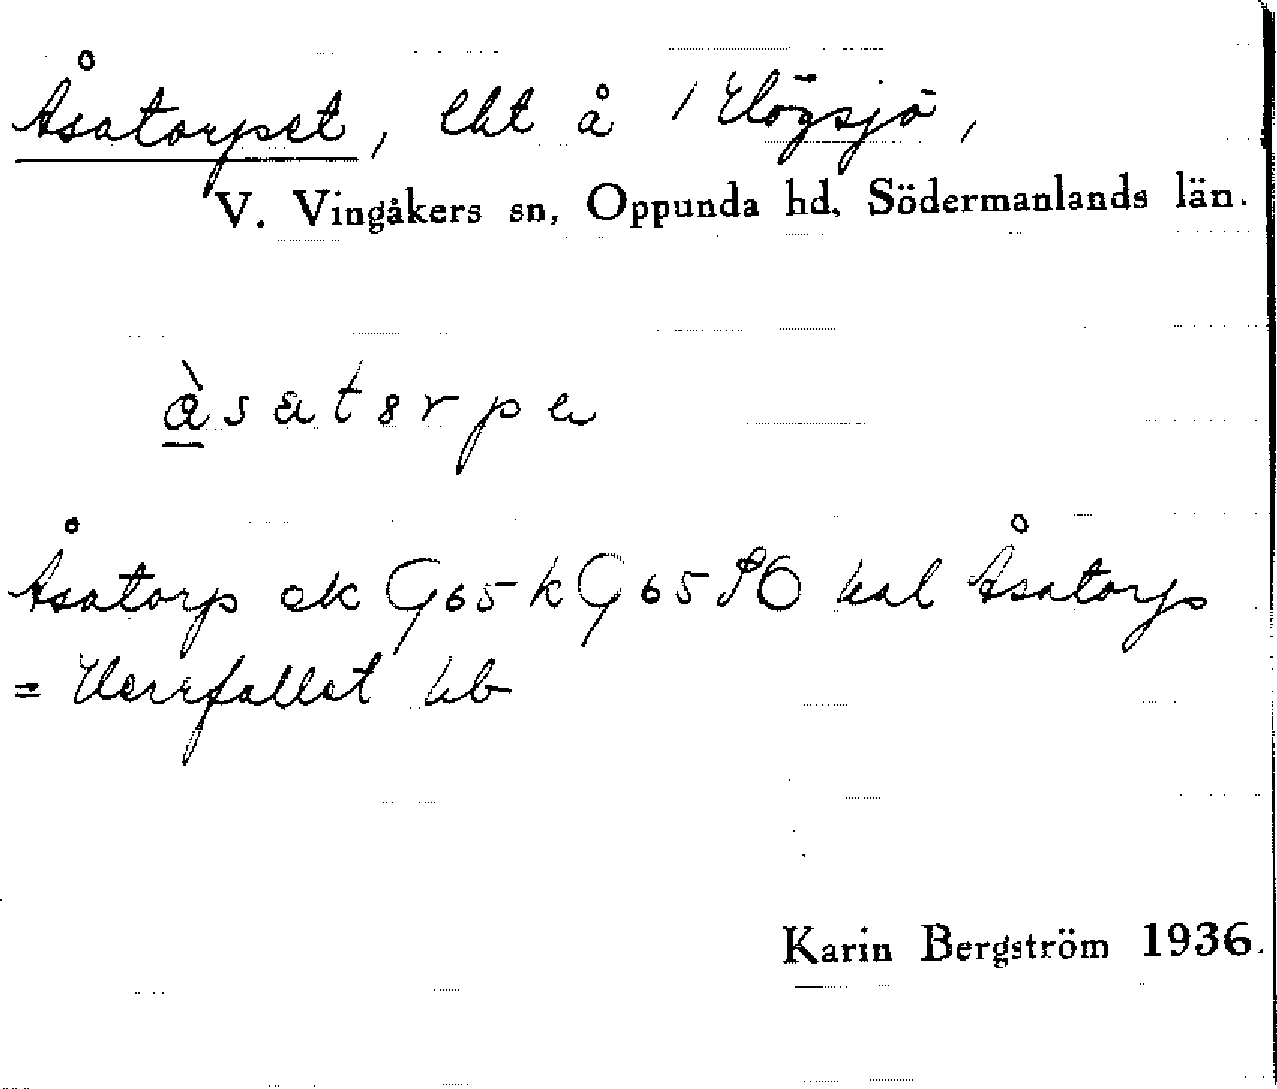 Åsatorpet, lht å 1 Högsjö,
V. Vingåkers sn, Oppunda hd, Södermanlands län.
Åsatorp ek G65 k G65 SO kal Åsatorp
= Herrfallet hb
Karin Bergström 1936.